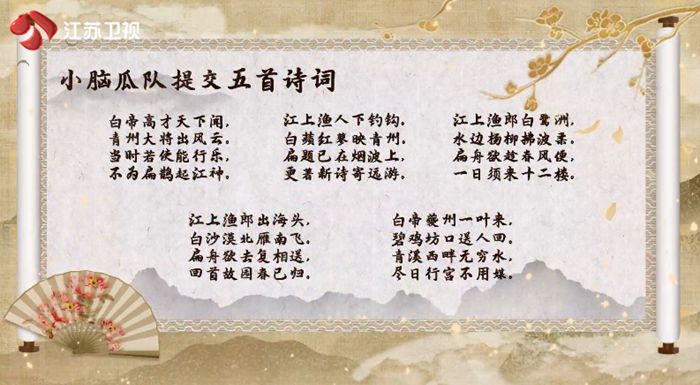 江苏卫视
小脑瓜队提交五首诗词
白帝高才天下闻,
青州大将出风云。
当时若使能行乐,
不为扁鹊起江神。
江上渔人下钓钩,
白蘋红蓼映青州。
扁题已在烟波上,
更著新诗寄远游。
江上渔郎白鹭洲,
水边杨柳拂波柔。
扁舟欲趁春风便,
一日须来十二楼。
江上渔郎出海头,
白沙漠北雁南飞。
扁舟欲去复相送,
回首故园春已归。
白帝夔州一叶来,
碧鸡坊口送人回。
青溪西畔无穷水,
尽日行宫不用媒。